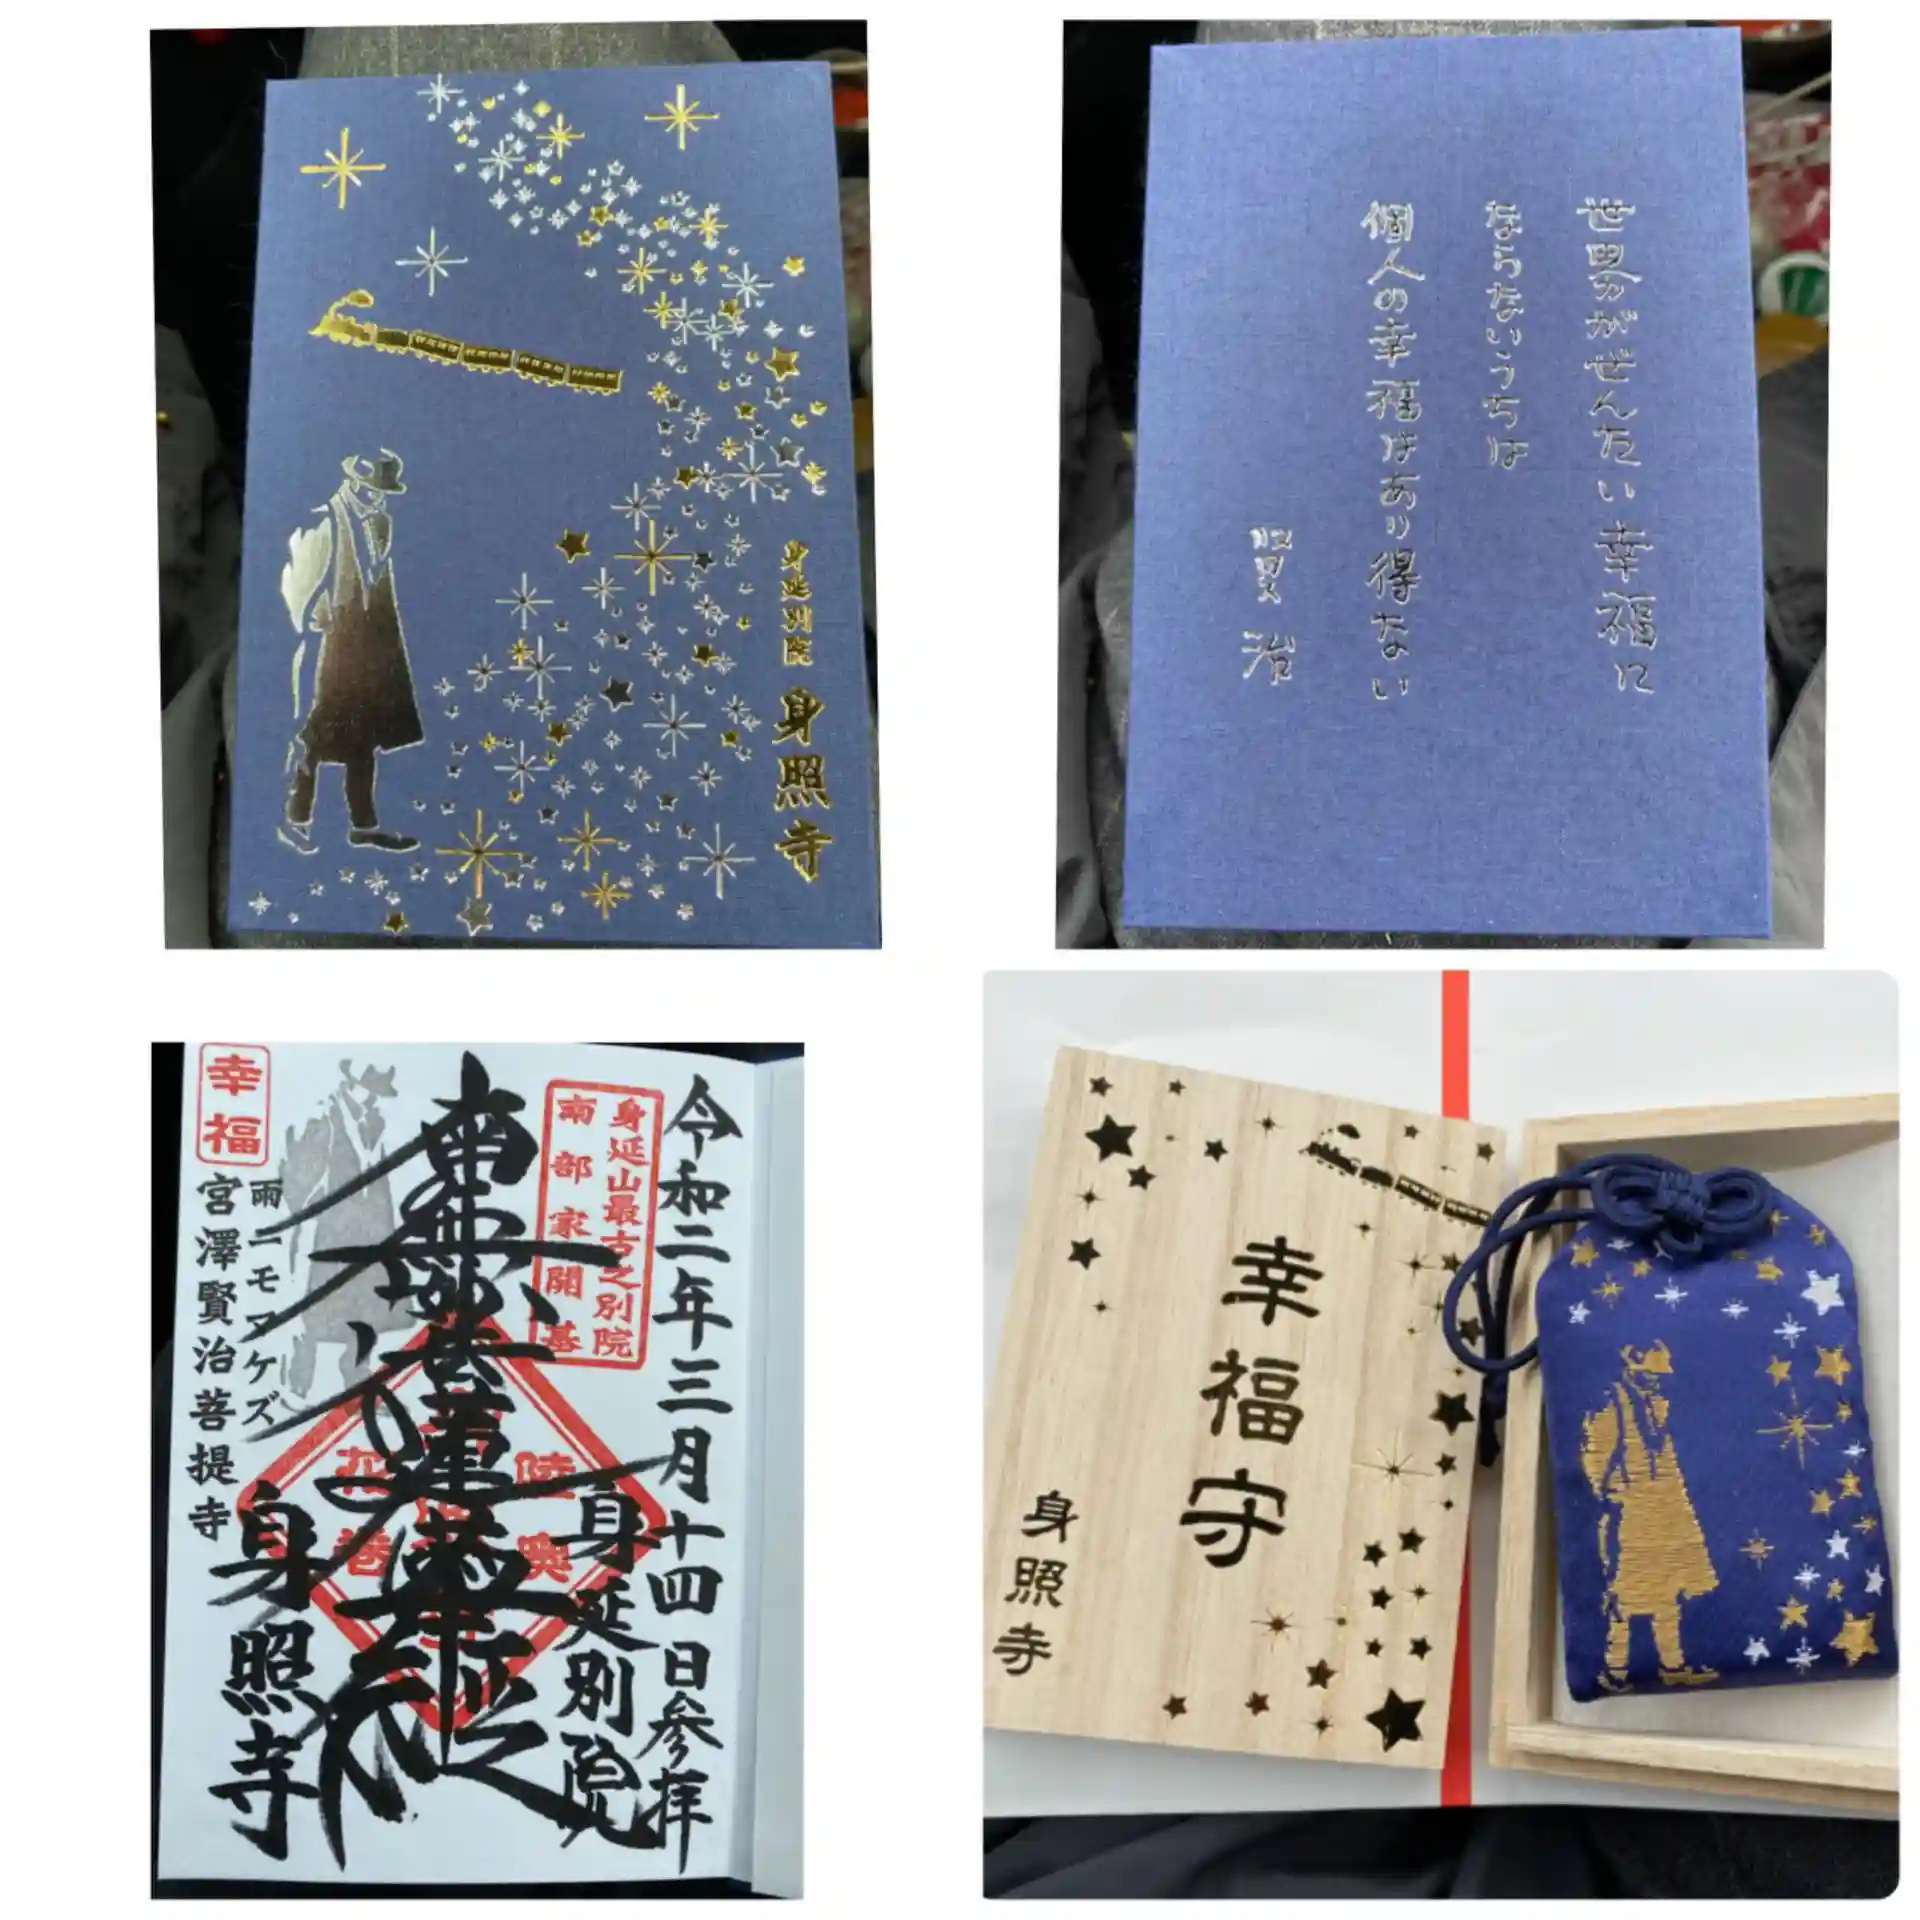 身延別院 身照寺
世界がぜんたい幸福に
ならないうちは
個人の幸福はあり得ない
賢治
令和二年三月十四日参拝
身延山最古之別院
南部家開基
身延別院
南無妙法蓮華経
陸奥
花巻
身照寺
幸福
雨ニモマケズ
宮澤賢治菩提寺
幸福守
身照寺